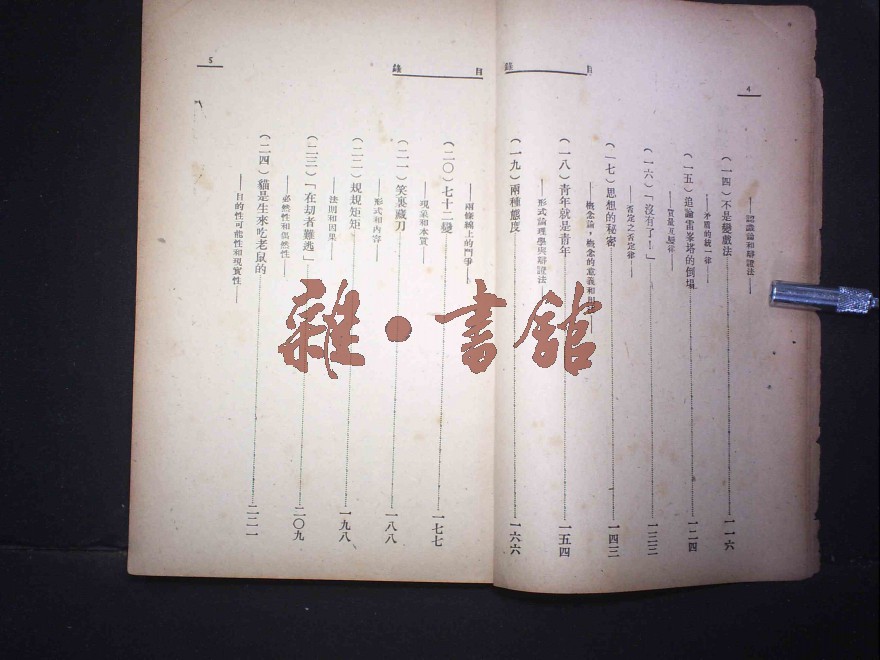 4
目錄
——認識論和辯證法——
(一四)不是變戲法……一一六
——矛盾的統一律——
(一五)追論雷峯塔的倒塌……一二四
——質量互變律——
(一六)「沒有了！」……一三三
——否定之否定律——
(一七)思想的秘密……一四三
——概念論，概念的意義和
(一八)青年就是青年……一五四
——形式論理學與辯證法——
(一九)兩種態度……一六六
5
目錄
——兩條線上的鬥爭——
(二〇)七十二變……一七七
——現象和本質——
(二一)笑裏藏刀……一八八
——形式和內容——
(二二)規規矩矩……一九八
——法則和因果——
(二三)「在劫者難逃」……二〇九
——必然性和偶然性——
(二四)貓是生來吃老鼠的……二二一
——目的性可能性和現實性——
雜•書館